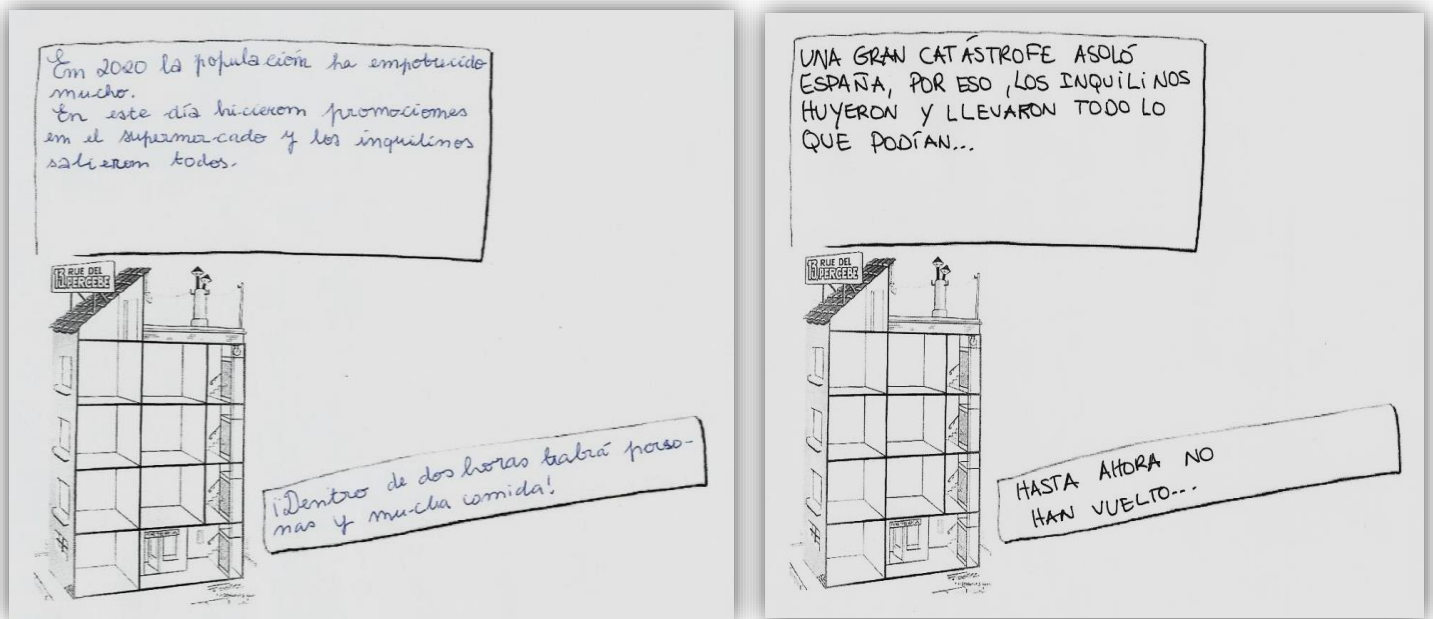 Em 2020 la populación ha empobrecido
mucho.
En este día hicierom promociomes
em el supermercado y los inquilinos
salierom todos.
13 RUE DEL
PERCEBE
¡Dentro de dos horas habrá perso-
nas y mucha comida!
UNA GRAN CATÁSTROFE ASOLÓ
ESPAÑA, POR ESO, LOS INQUILINOS
HUYERON Y LLEVARON TODO LO
QUE PODÍAN...
13 RUE DEL
PERCEBE
HASTA AHORA NO
HAN VUELTO...